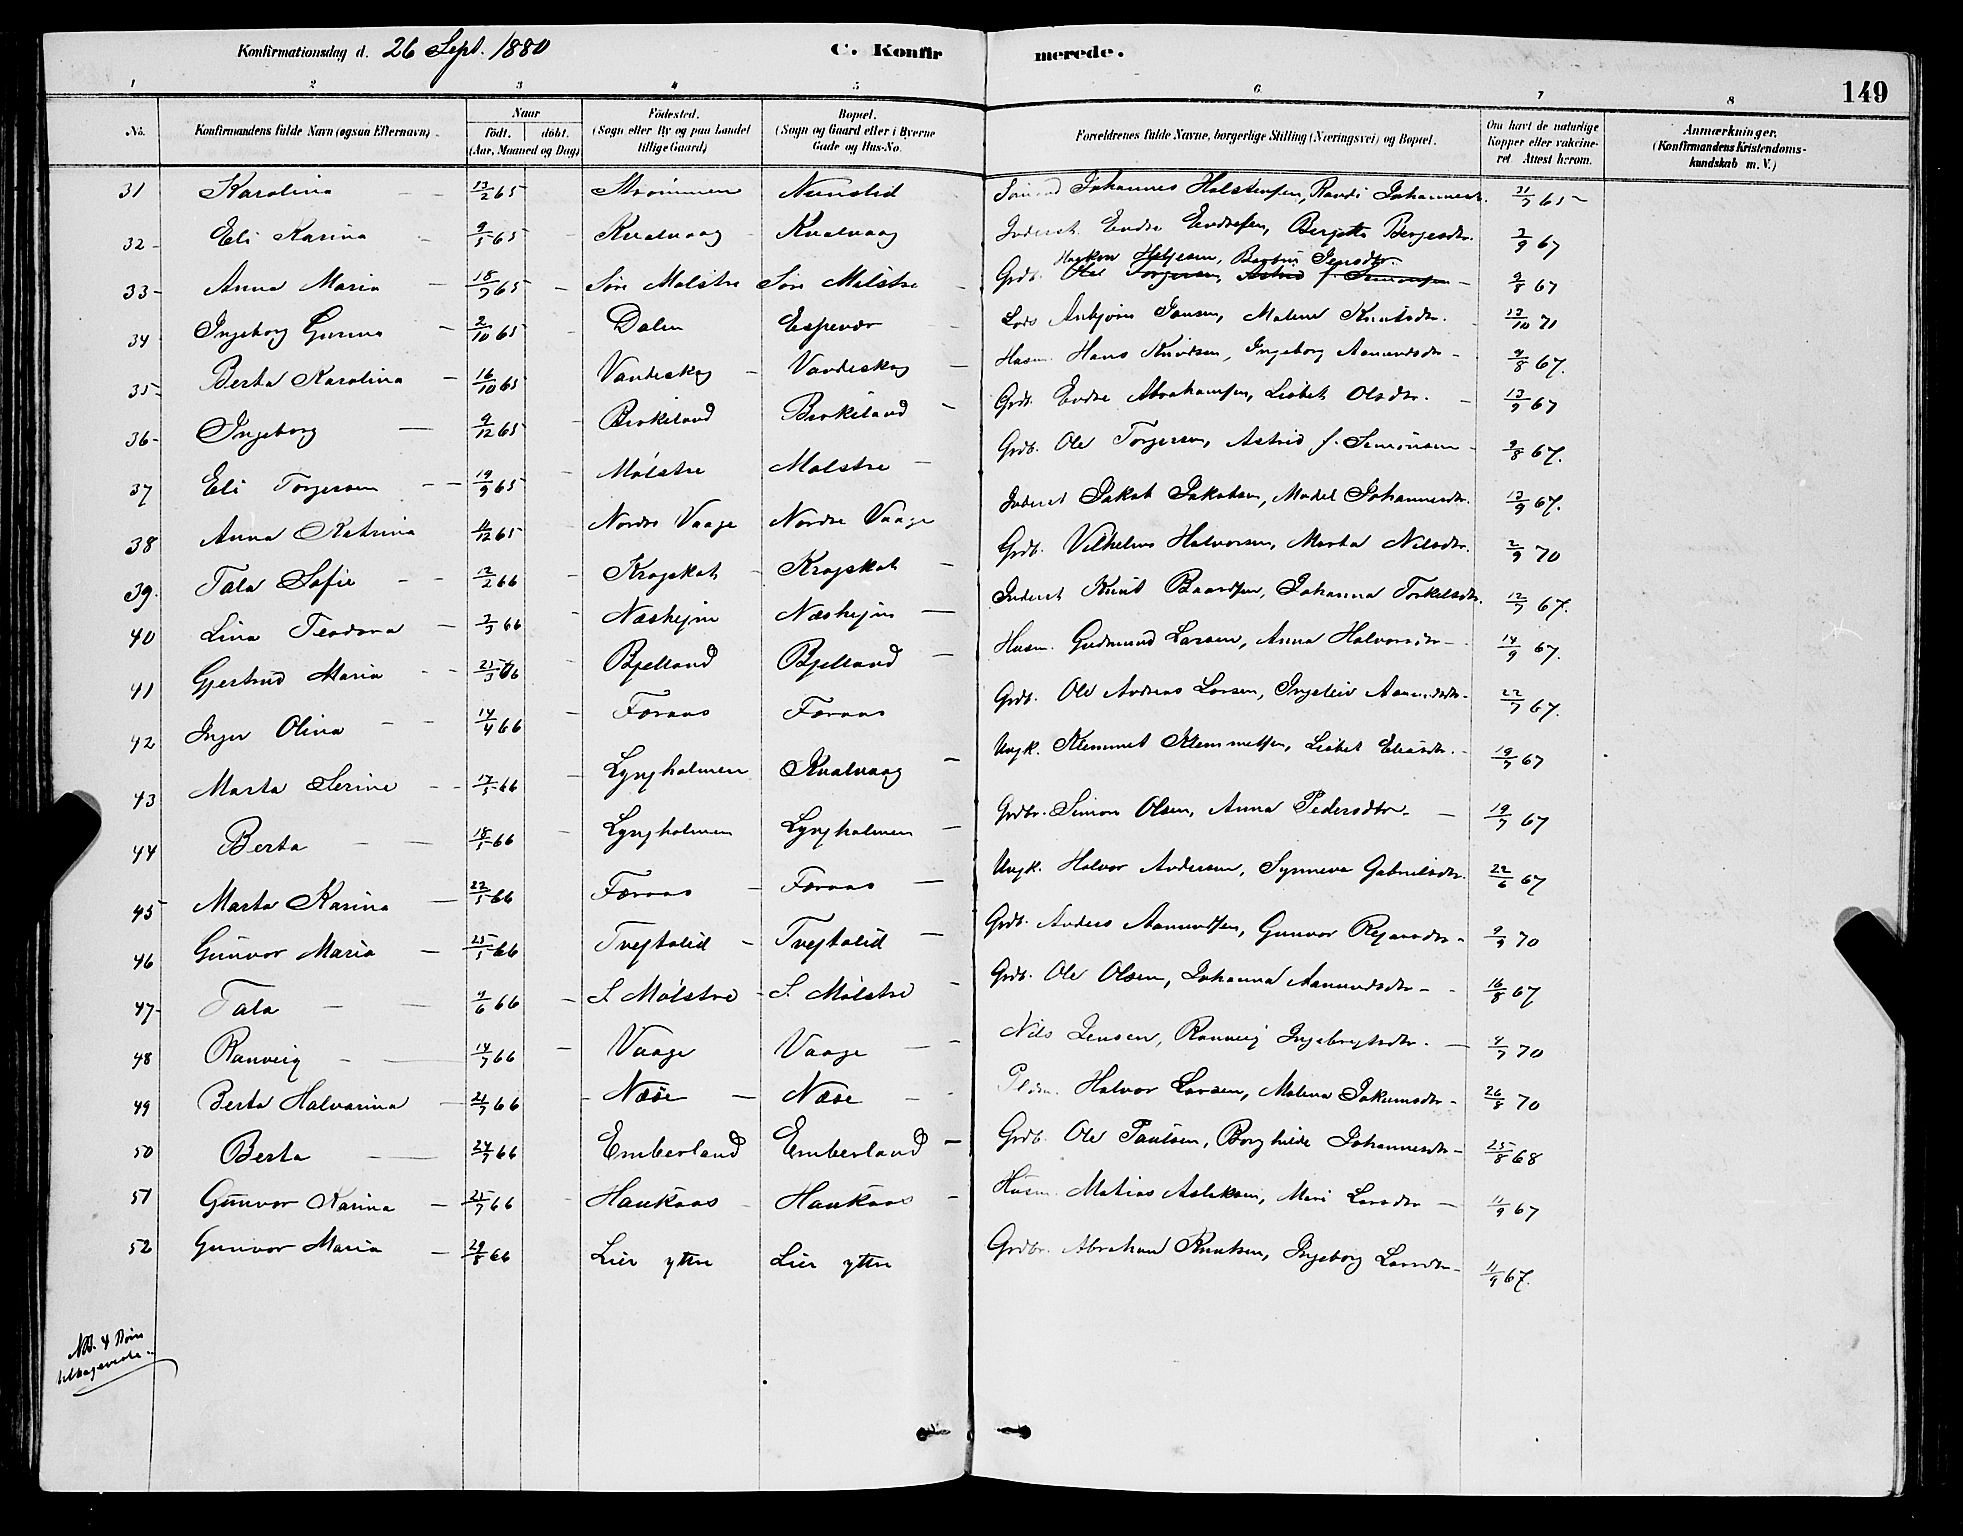 Konfirmationsdag d. 26 Sept. 1880 C. Konfir merede. 149
1 2 3 4 5 6 7 8
No. Konfirmandens fulde Navn (ogsaa Efternavn). Naar födt. döbt. (Aar, Maaned og Dag) Födested. (Sogn eller By og paa Landet tillige Gaard) Bopæl. (Sogn og Gaard eller i Byerne Gade og Hus-No. Forældrenes fulde Navne, borgerlige Stilling (Næringsvei) og Bopæl. Om havt de naturlige Kopper eller vakcineret. Attest herom. Anmærkninger. (Konfirmandens Kristendomskundskab m. V.)
31 Karolina 13/2 65 Strømmen Nunslid Johannes Halstensen, Randi Johannesd. 31/7 65
32 Eli Karina 9/5 65 Kvalvaag Kvalvaag Inderst Endre Endresen, Bergitte Bergesdtr. 3/9 67
Haakon Helgesen, Jensdtr.
33 Anna Maria 18/7 65 Søre Mølstre Søre Mølstre Grdb. Ole Torgersen, Astrid f. Simonsen 9/8 67
34 Ingeborg Gurina 2/10 65 Dalen Espevær Lods Anbjørn Jansen, Malene Knutsdtr. 13/10 71
35 Berta Karolina 16/10 65 Vandeskog Vandeskog Husm. Hans Knudsen, Ingeborg Aamundsdtr 9/8 67.
36 Ingeborg 9/12 65 Birkeland Birkeland Grdb. Endre Abrahamsen, Lisbet Olsdtr. 13/9 67
37 Eli Torgersen 19/9 65 Mølstre Mølstre Grdb. Ole Torgersen, Astrid f. Simonsen 9/8 67.
38 Anna Katrina 11/12 65 Nordre Vaage Nordre Vaage Inderst Jakob Jakobsen, Madel Johannesdtr. 13/9 67.
39. Tala Sofie 12/2 66 Krogskot Krogskot Grdb. Vilhelm Halvorsen, Marta Nilsdtr. 2/9 70
40 Lina Teodora 2/3 66 Næshejm Næshejm Inderst Knut Baardsen, Johanna Torkelsdtr. 12/7 67.
41 Gjertrud Maria 21/3 66 Bjelland Bjelland Husm. Gudmund Larsen, Anna Halvorsdtr 14/9 67.
42 Inger Olina 14/4 66 Føraas Føraas Grdb. Ole Andreas Larsen, Ingeleiv Aamundsdtr 22/7 67.
43 Marta Serine 17/5 66 Lyngholmen Kvalvaag Ungk. Klemmet Klemmetsen, Lisbet Eliasdtr. 19/7 67
44 Berta 18/5 66 Lyngholmen Lyngholmen Grdbr. Simon Olsen, Anna Pedersdtr. 19/7 67
45 Marta Karina 22/5 66 Føraas Føraas Ungk. Halvor Andersen, Synneva Gabrielsdtr. 22/6 67
46 Gunvor Maria 25/5 66 Tvejtalid Tvejtalid Grdb. Anders Aamundsen, Gunvor Rejarsdtr 9/9 70
47 Tala 4/6 66 S. Mølstre S. Mølstre Grdb. Ole Olsen, Johanna Aamundsdtr 16/8 67
48 Ranveig 14/7 66 Vaage Vaage Nils Jensen, Ranveig Ingebrigtsdtr. 4/7 70
49 Berta Halvarina 21/7 66 Næse Næse Halvor Larsen, Malena Jokumsdtr 26/8 70
50 Berta 24/7 66 Emberland Emberland Grdb. Ole Paulsen, Borghilde Johannesdtr 25/8 68
51 Gunvor Karina 25/7 66 Haukaas Haukaas Husm. Matias Aslaksen, Mari Larsdtr 11/9 67
52 Gunvor Maria 29/8 66 Lier ytre Lier ytre Grdbr. Abraham Knutsen, Ingeborg Larsdtr 11/9 67.
NB. 4 Børn
tilbageviste.